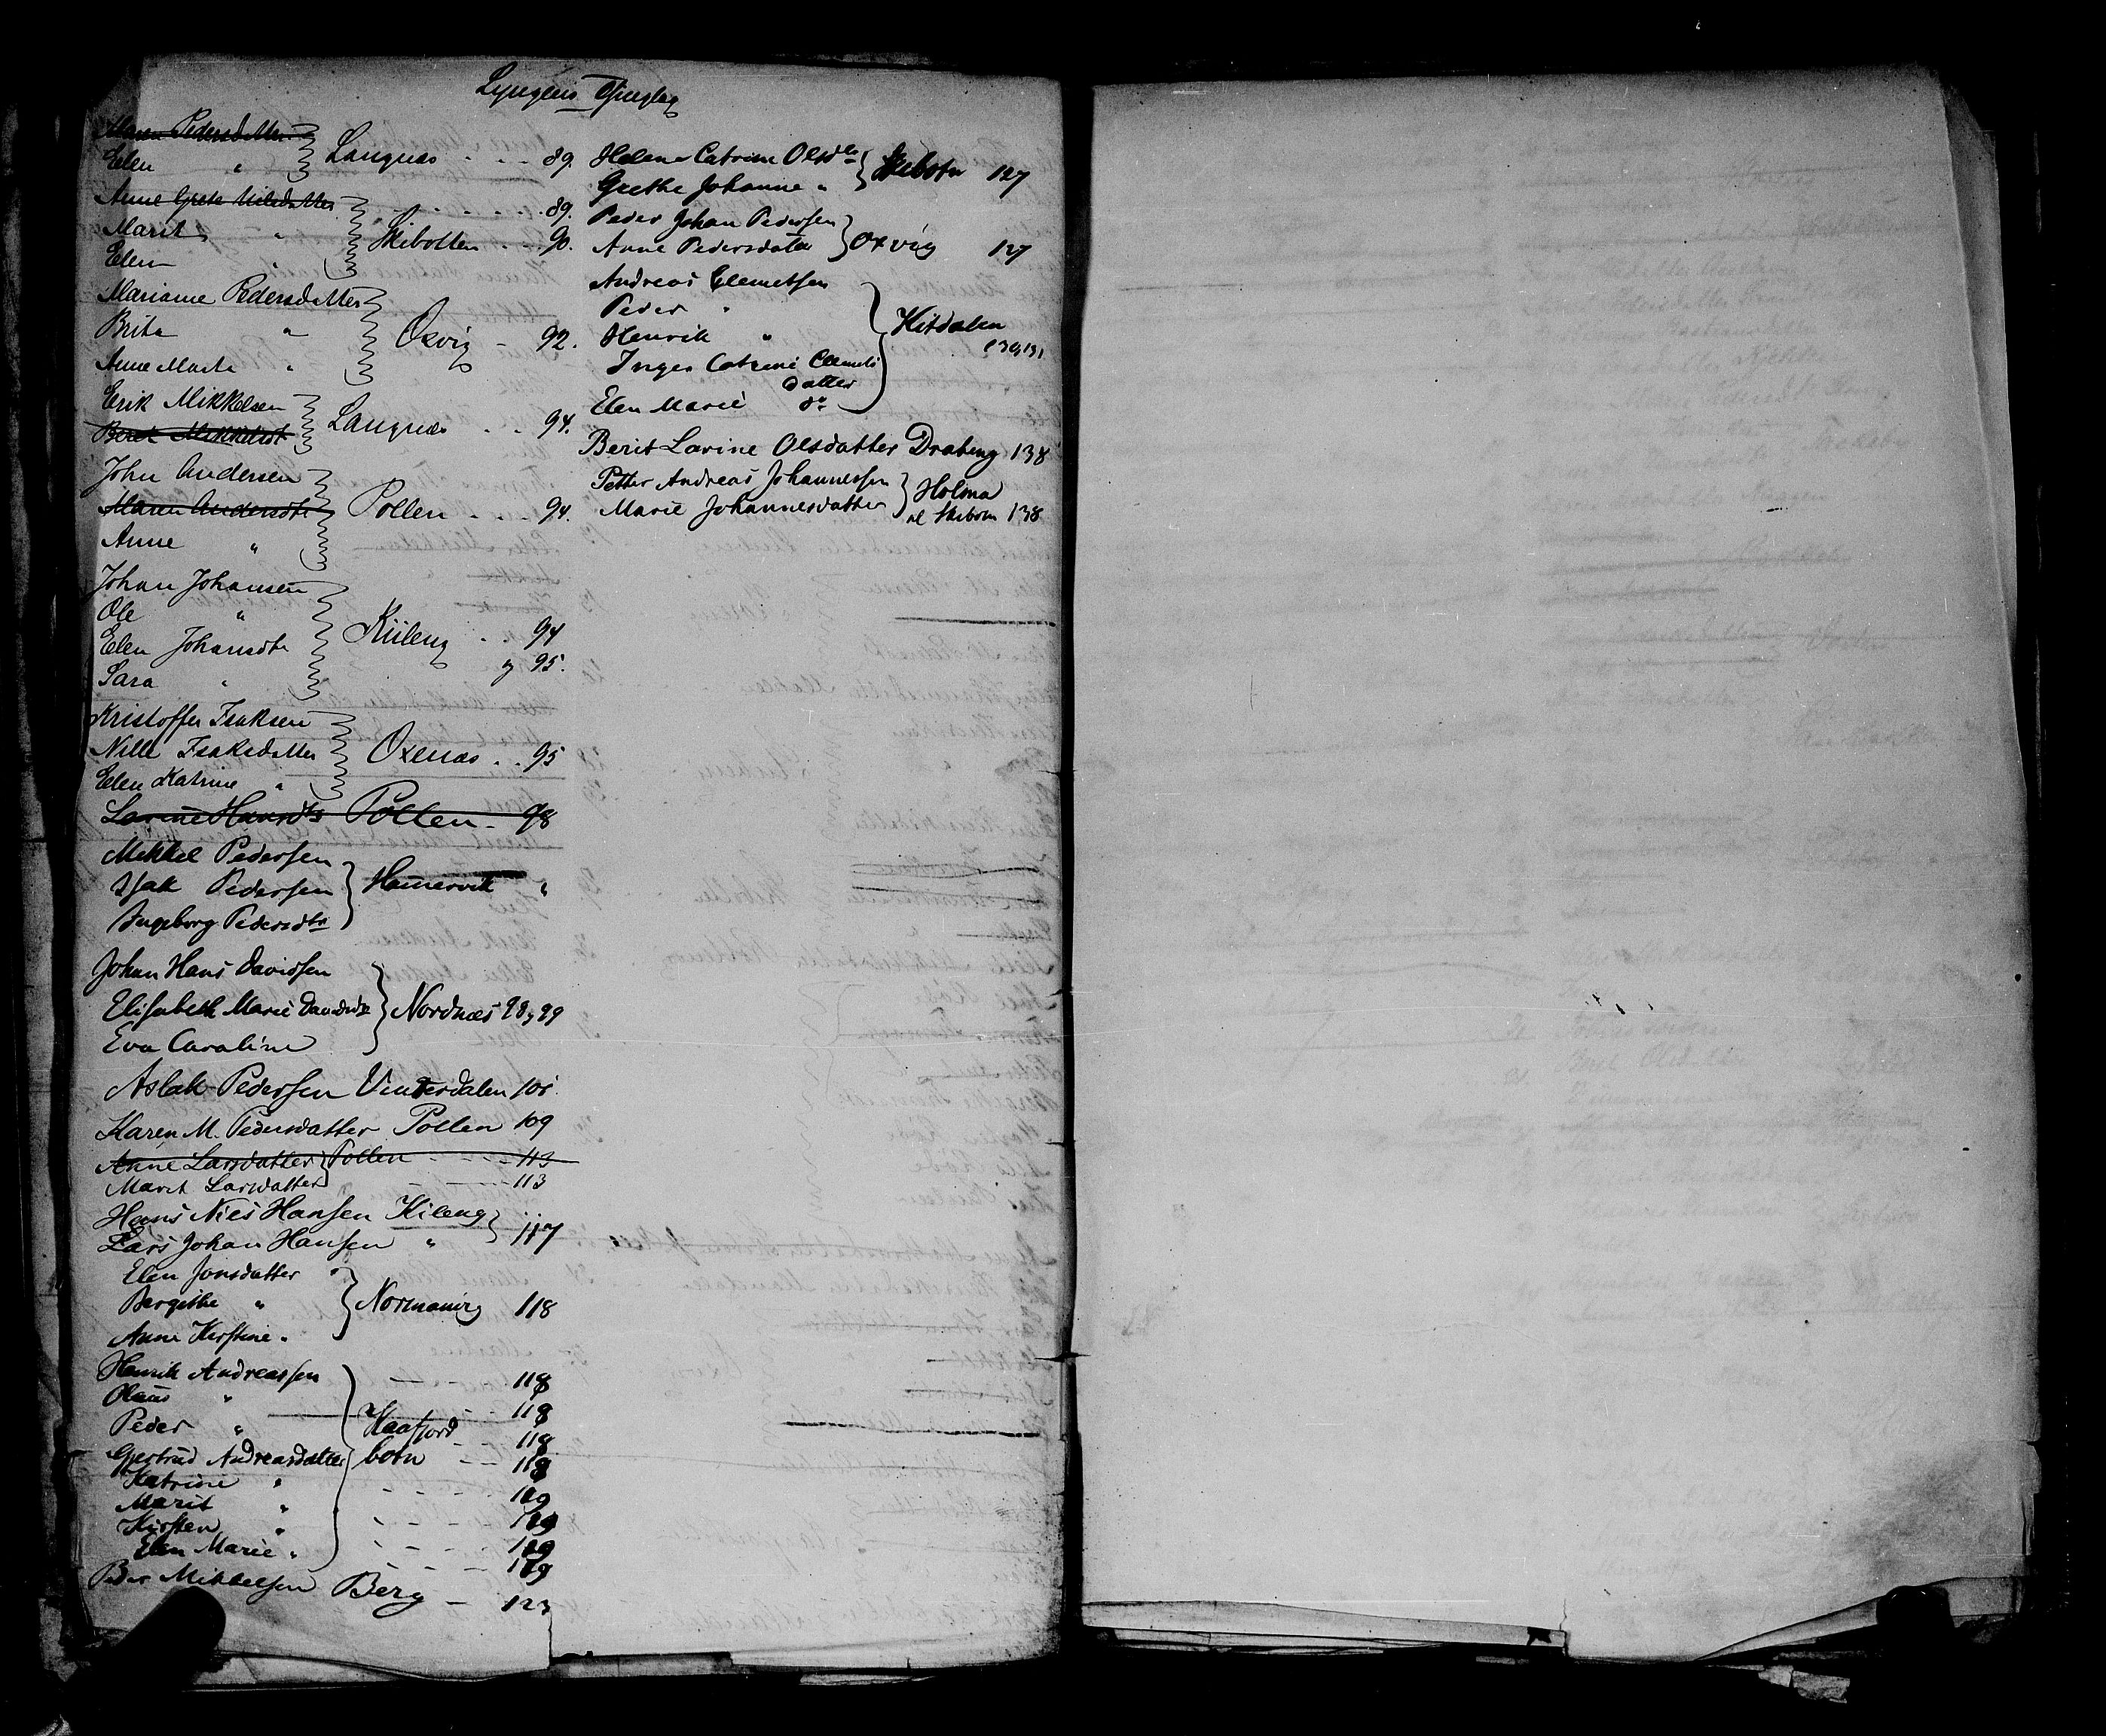 Lyngens Thinglag
Maren Pedersdatter
Elen " Langnæs 89.
Anne Grete Nilsdatter 89.
Marit " Skibotten 90.
Elen "
Mariane Pedersdatter
Brita " Oxvig 92.
Anne Marta "
Erik Mikkelsen
Langnæs 94.
Berit Mikkelsdt
John Andersen
Maren Andersdtr Pollen 94.
Anne "
Johan Johansen
Ole "
Elen Johansdtr Kiileng 94
Sara " og 95.
Kristoffer Isaksen
Nille Isaksdatter Oxenæs 95
Elen Katrine "
Lavine Hansdtr Pollen 98
Mikkel Pedersen
Isak Pedersen Hamervik "
Ingeborg Pedersdtr
Johan Hans Davidsen
Elisabeth Marie Davidsdtr Nordnæs 98, 99
Eva Caroline
Aslak Pedersen
Karen M. Pedersdatter Pollen 109
Anne Larsdatter Pollen 113
Marit Larsdatter 113
Hans Nils Hansen Kileng
Lars Johan Hansen " 117
Elen Jonsdatter "
Bergithe " Normanvig 118
Anne Kirstine "
Henrik Andreassen 118
Olaus " 118
Peder " Kaafjord 118
Gjertrud Andreasdatter botn 118
Katrine " 119
Marit " 119
Kirsten " 119
Elen Marie " 119
Per Mikkelsen Berg 123
Helene Catrine Olsdtr Skibotn 127
Grethe Johanne "
Peder Johan Pedersen
Anne Pedersdatter Oxvig 127
Andreas Clemetsen
Peder "
Henrik " Kitdalen
130, 131
Inger Catrine Clemets
datter
Elen Marie do
Berit Lavine Olsdatter Drabeng 138
Petter Andreas Johannessen Holma
Marie Johannesdatter al Skibotn 138